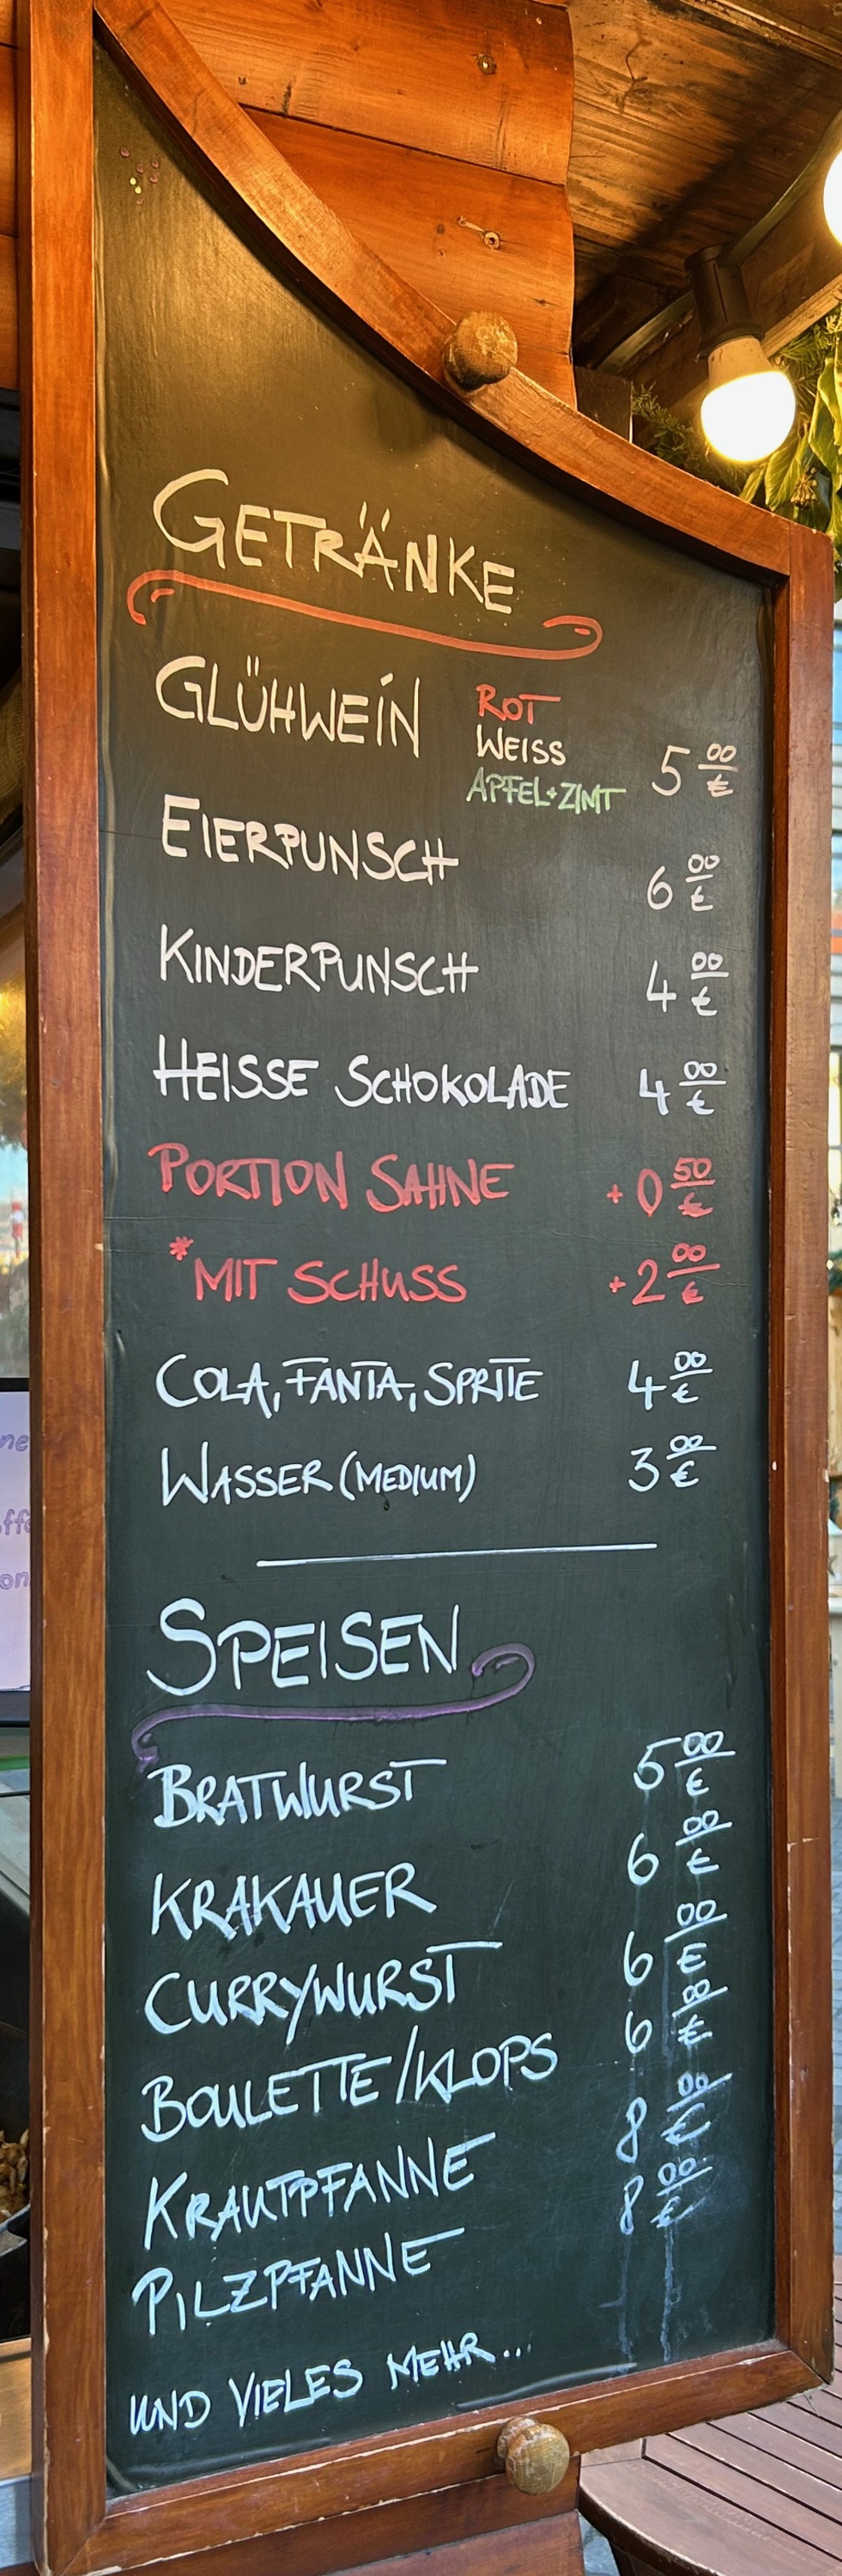 GETRÄNKE
GLÜHWEIN ROT
WEISS
APFEL+ZIMT 5 00/€
EIERPUNSCH 6 00/€
KINDERPUNSCH 4 00/€
HEISSE SCHOKOLADE 4 00/€
PORTION SAHNE +0 50/€
*MIT SCHUSS +2 00/€
COLA, FANTA, SPRITE 4 00/€
WASSER (MEDIUM) 3 00/€
SPEISEN
BRATWURST 5 00/€
KRAKAUER 6 00/€
CURRYWURST 6 00/€
BOULETTE/KLOPS 6 00/€
KRAUTPFANNE 8 00/€
PILZPFANNE 8 00/€
UND VIELES MEHR...